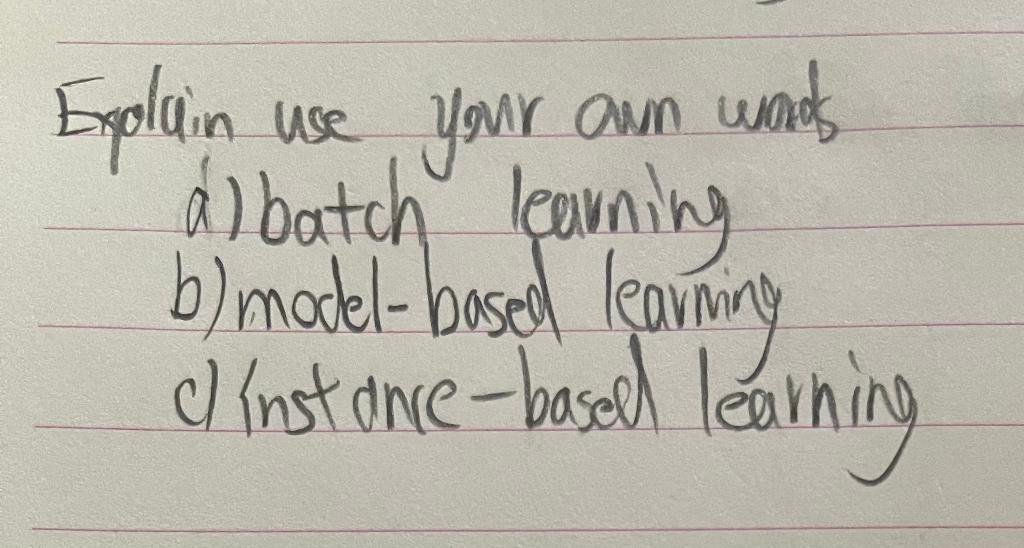 Explain use your own words
a) batch learning
b) model-based learning
c) instance-based learning